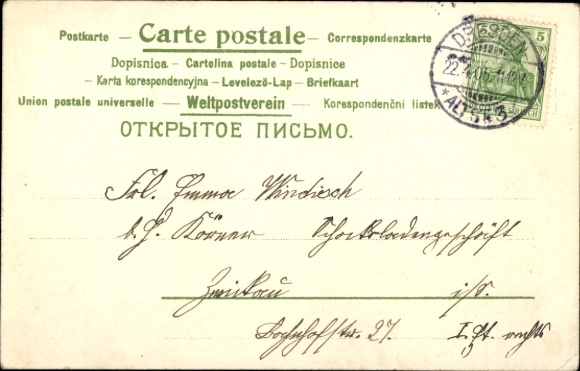 Postkarte — Carte postale — Correspondenzkarte
Dopisnica — Cartolina postale — Dopisnice
— Karta korespondencyjna — Levelező-Lap — Briefkaart
Union postale universelle — Weltpostverein — Korespondenční listek
ОТКРЫТОЕ ПИСЬМО.
5
DRESDEN
* ALTST. 3
Frl. Emma Windisch
b. H. Körner Schokoladengeschäft
Zwickau i/S.
Bahnhofstr. 27. I. Et. rechts